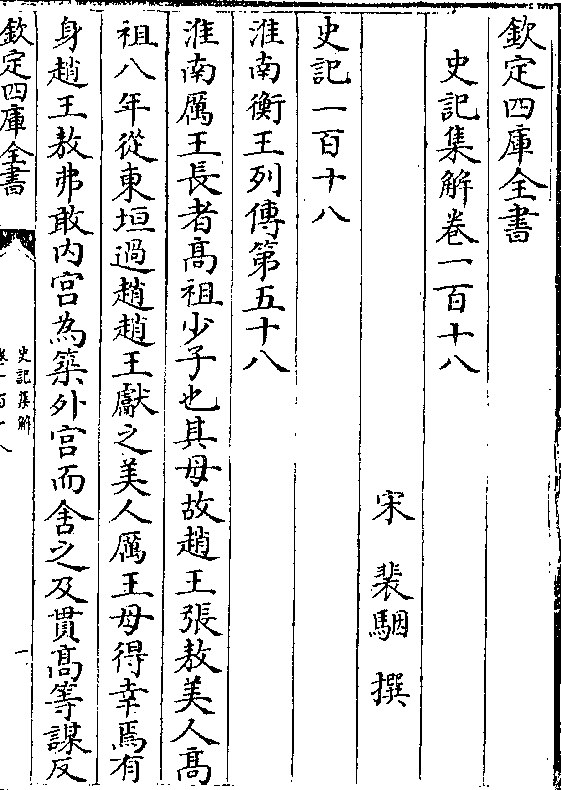 欽定四庫全書
史記集解卷一百十八
宋 裴駰 撰
史記一百十八
淮南衡王列傳第五十八
淮南厲王長者髙祖少子也其母故趙王張敖美人髙
祖八年從東垣過趙趙王獻之美人厲王母得幸焉有
身趙王敖弗敢内宫為築外宫而舍之及貫髙等謀反
欽定四庫全書
史記集解
一